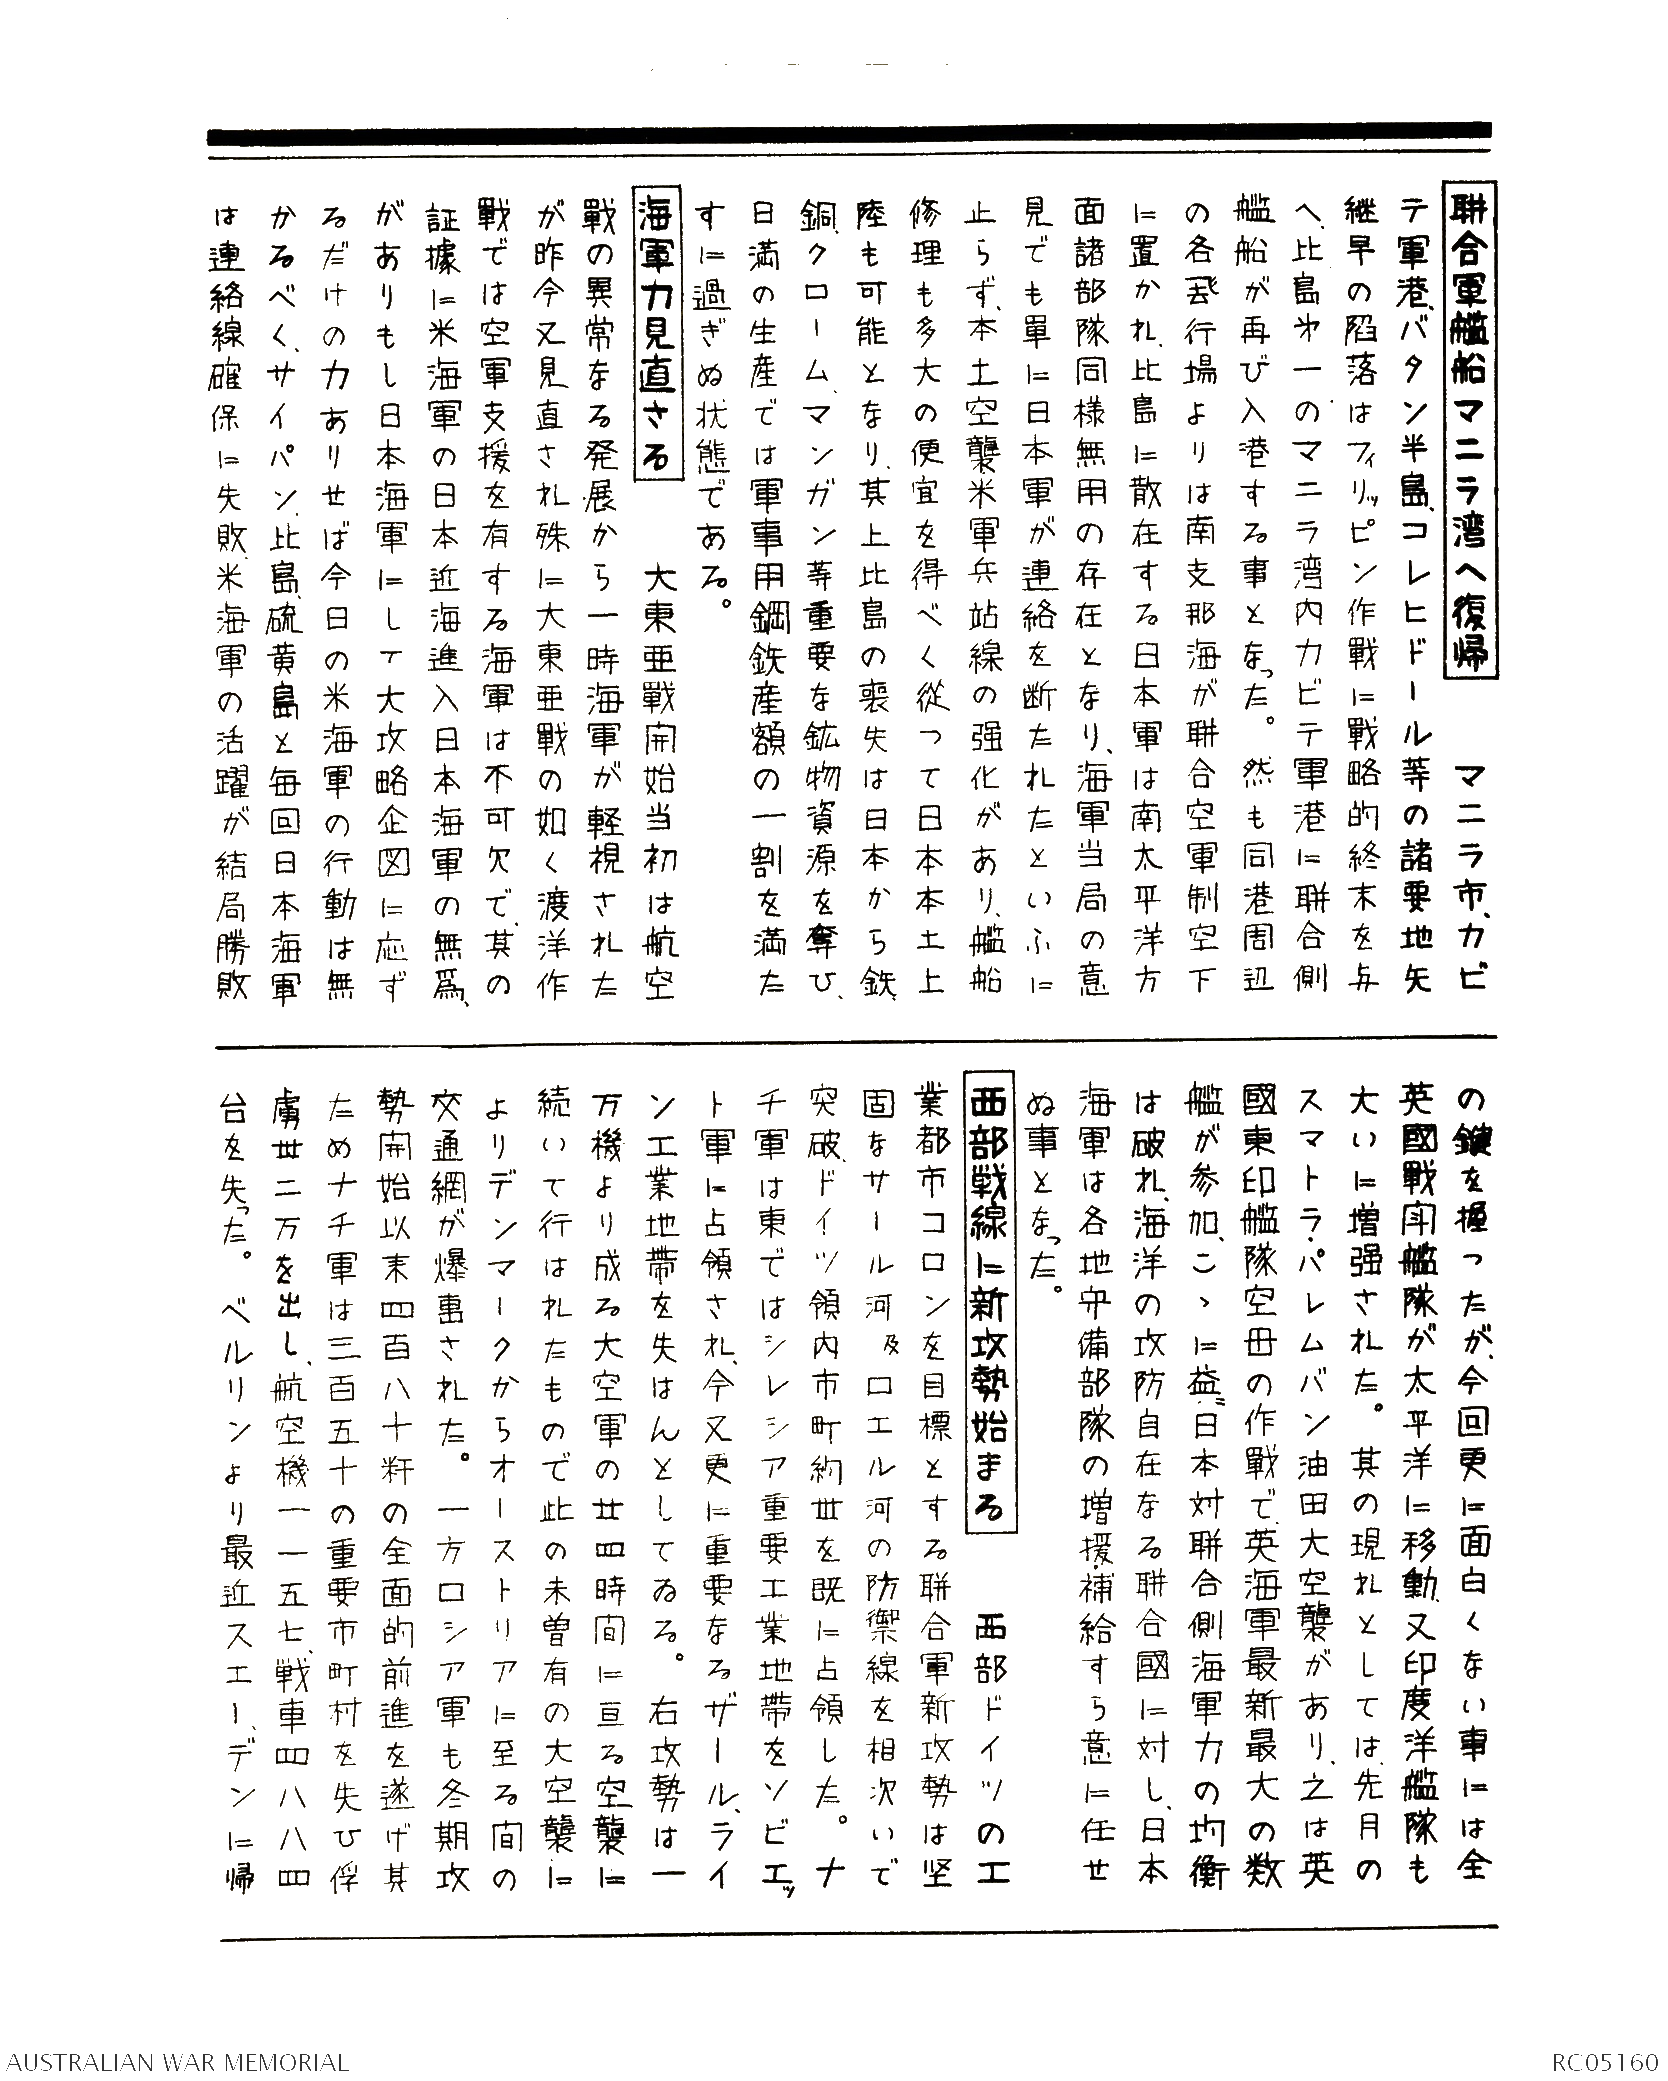 聨合軍艦船マニラ湾へ復帰　マニラ市、カビ
テ軍港、バタン半島、コレヒドール等の諸要地矢
継早の陥落はフィリッピン作戦に戦略的終末を与
へ、比島㐧一のマニラ湾内カビテ軍港に聨合側
艦船が再び入港する事となった。然も同港周辺
の各飛行場よりは南支那海が聨合空軍制空下
に置かれ、比島に散在する日本軍は南太平洋方
面諸部隊同様無用の存在となり、海軍当局の意
見でも軍に日本軍が連絡を断たれたといふに
止らず、本土空襲米軍兵站線の强化があり、艦船
修理も多大の便宜を得べく従って日本本土上
陸も可能となり、其上比島の喪失は日本から鉄、
銅、クローム、マンガン等重要な鉱物資源を奪ひ、
日満の生産では軍事用鋼鉄産額の一割を満た
すに過ぎぬ状態である。
海軍力見直さる　大東亜戰開始当初は航空
戰の異常なる発展から一時海軍が軽視された
が昨今又見直され殊に大東亜戰の如く渡洋作
戰では空軍支援を有する海軍は不可欠で、其の
証據に米海軍の日本近海進入日本海軍の無為、
がありもし日本海軍にして大攻略企図に応ず
るだけの力ありせば今日の米海軍の行動は無
かるべく、サイパン、比島、硫黄島と毎回日本海軍
は連絡線確保に失敗、米海軍の活躍が結局勝敗
の鍵を握ったが、今回更に面白くない事には全
英國戰闘艦隊が太平洋に移動、又印度洋艦隊も
大いに増强された。其の現れとしては、先月の
スマトラ・パレムバン油田大空襲があり、之は英
國東印艦隊空母の作戰で、英海軍最新最大の数
艦が参加、こゝに益〻日本対聨合側海軍力の均衡
は破れ、海洋の攻防自在なる聨合國に対し、日本
海軍は各地守備部隊の増援・補給すら意に任せ
ぬ事となった。
西部戦線に新攻勢始まる　西部ドイツの工
業都市コロンを目標とする聨合軍新攻勢は坚
固なサール河及ロエル河の防禦線を相次いで
突破、ドイツ領内市町約丗を既に占領した。ナ
チ軍は東ではシレシア重要工業地帯をソビエッ
ト軍に占領され、今又更に重要なるザール、ライ
ン工業地帯を失はんとしてゐる。右攻勢は一
万機より成る大空軍の廿四時间に亘る空襲に
続いて行はれたもので此の未曽有の大空襲に
よりデンマークからオーストリアに至る间の
交通網が爆事された。一方ロシア軍も冬期攻
勢開始以来四百八十粁の全面的前進を遂げ其
ためナチ軍は三百五十の重要市町村を失ひ俘
虜丗二万を出し、航空機一一五七、戦車四八八四
台を失った。ベルリンより最近スエーデンに帰
AUSTRALIAN WAR MEMORIAL
RC05160